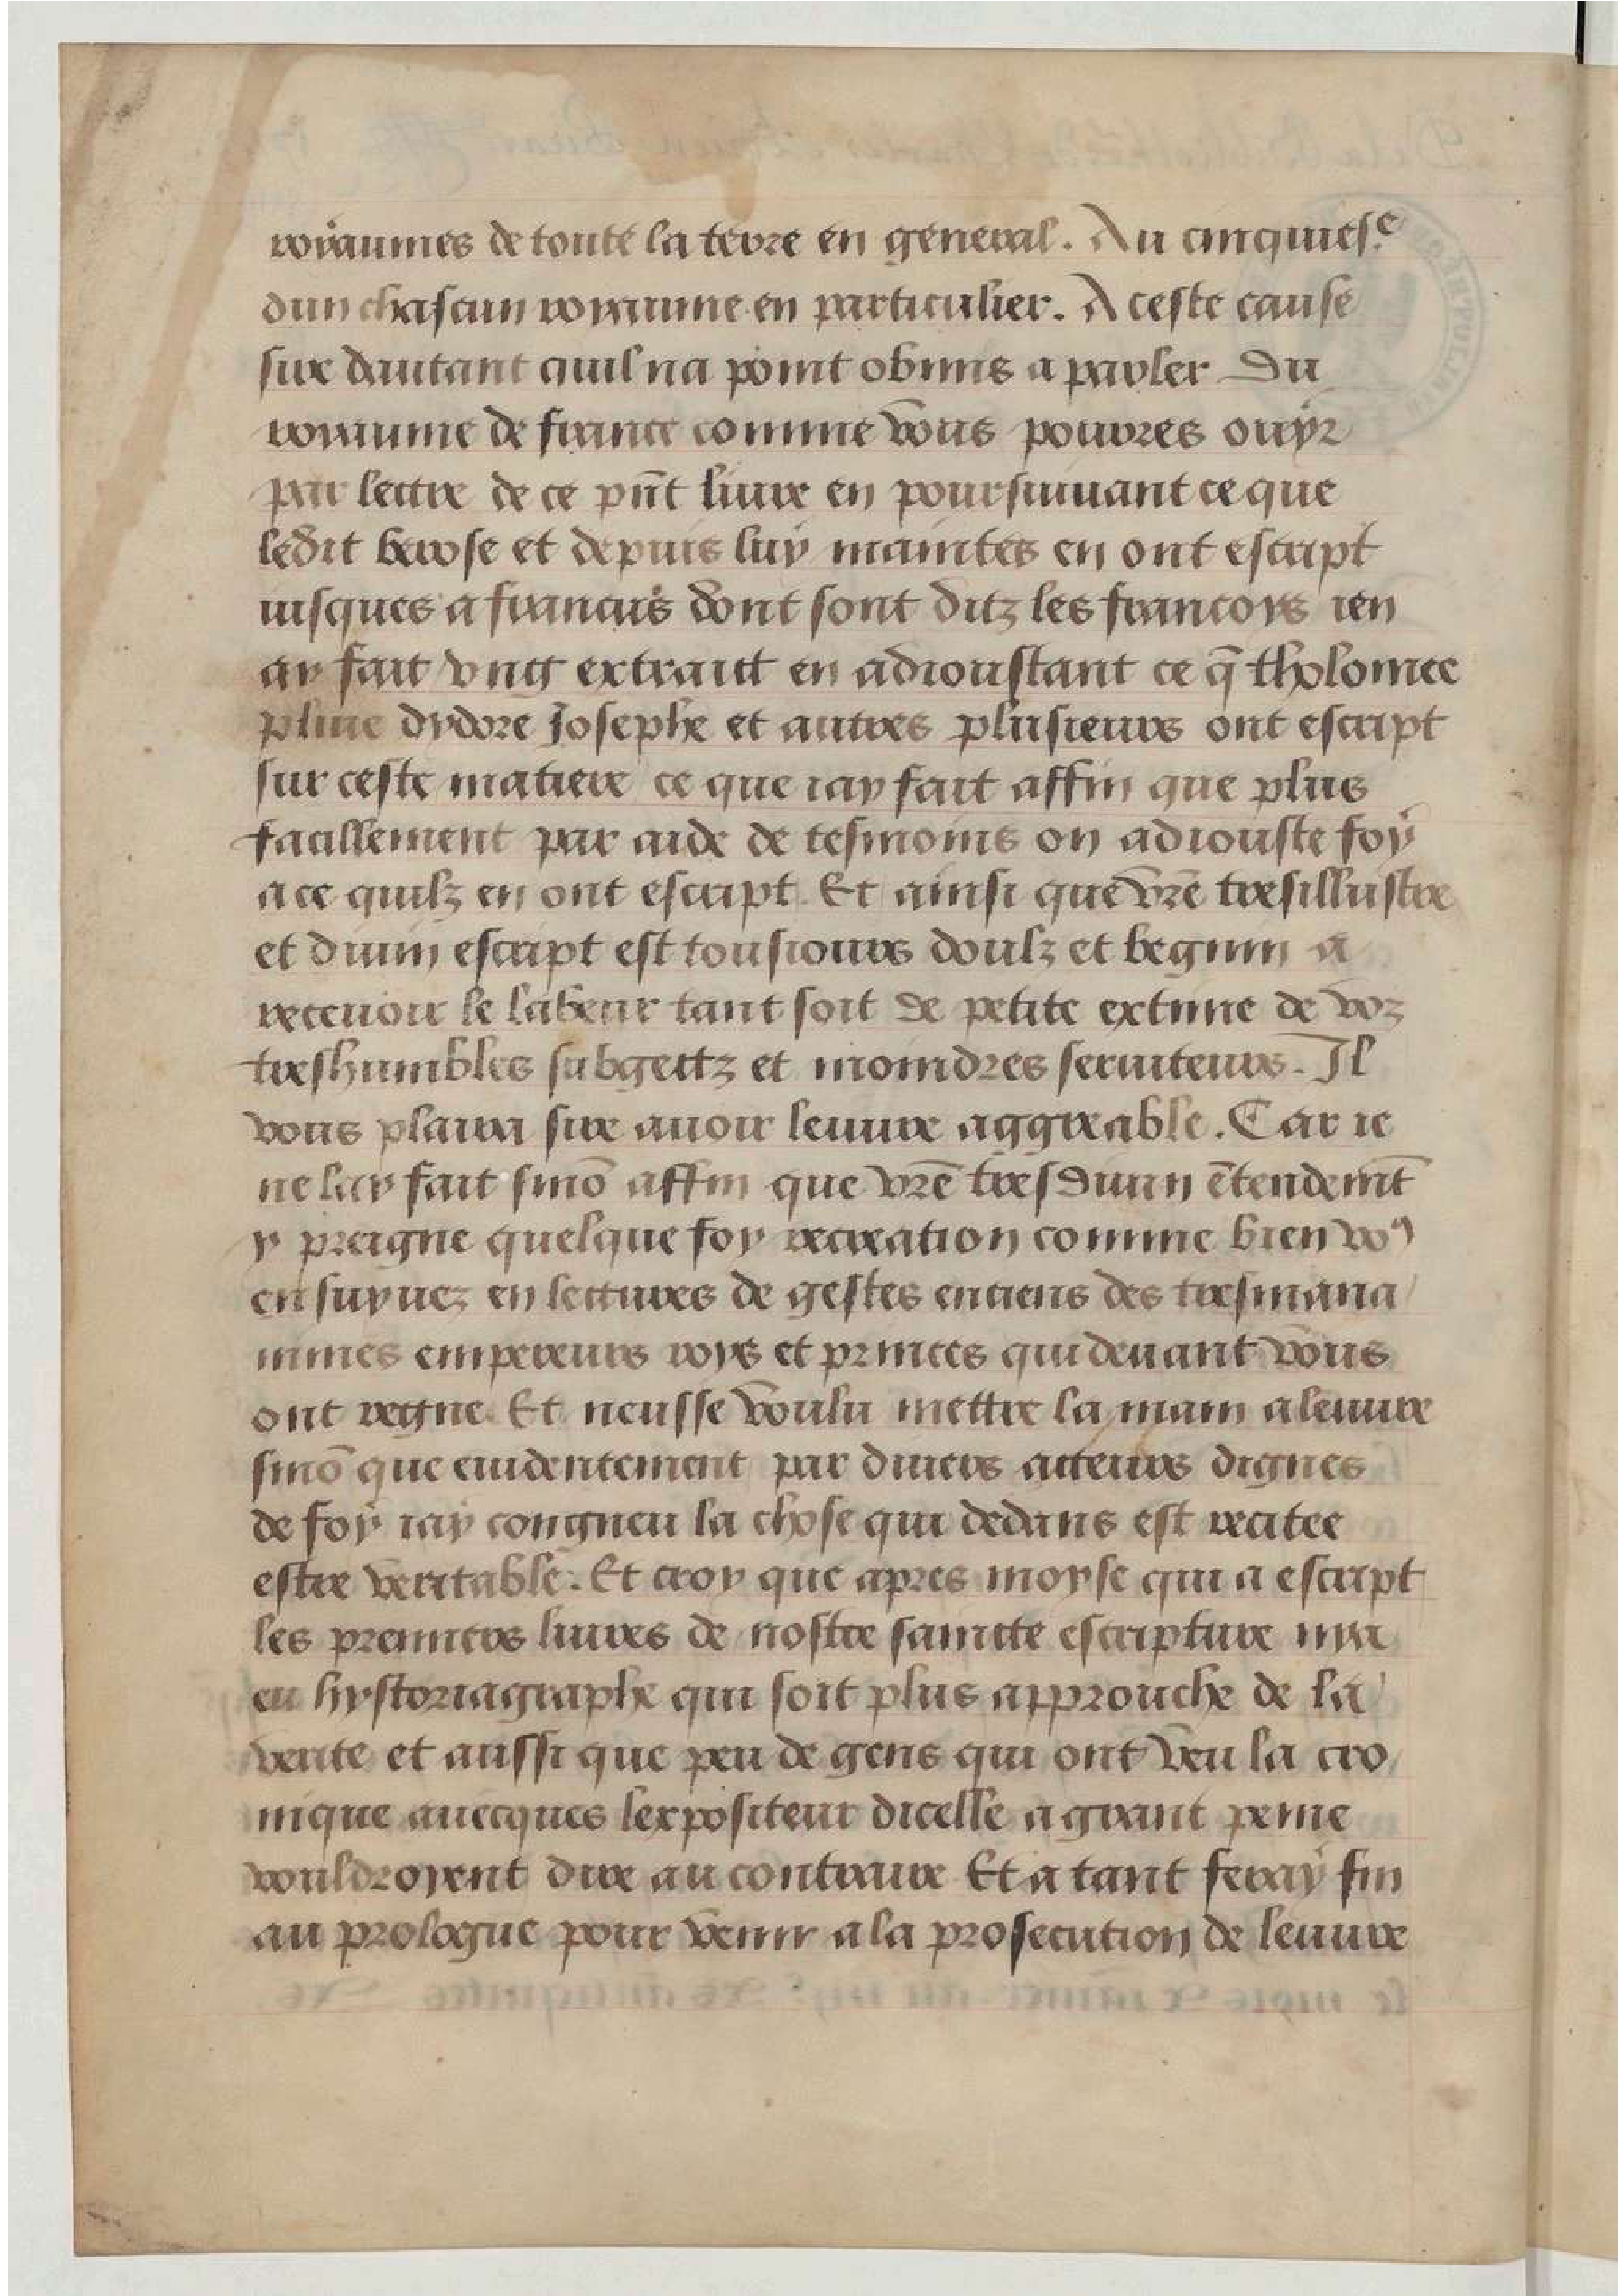 royaumes de toute la terre en general. Au cinquies.e
dun chascun royaume en particulier. A ceste cause
sire dautant quil na point obmis a parler Du
royaume de france comme vous pouvres ouyr
par lectre de ce pñt livre en poursuiuant ce que
ledit berose et depuis luy maintes en ont escript
iusques a francus dont sont ditz les francoys ien
ay fait vng extraict en adioustant ce q̄ tholomee
pline dydore Josephe et autres plusieurs ont escript
sur ceste matiere ce que iay fait affin que plus
facillement par aide de tesmoins on adiouste foy
a ce quilz en ont escript. Et ainsi que vr̄e tresillustre
et diuin escript est tousiours doulz et begnin a
receuoir le labeur tant soit de petite extime de voz
treshumbles subgectz et moindres seruiteurs. Il
vous plaira sire auoir leuure aggreable. Car ie
ne lay fait sinō affin que vr̄e tresdiuin ētendemt̄
y preigne quelque foy recreation comme bien vo9
ensuyuez en lectures de gestes enciens des tresmana
nimes empereurs roys et princes qui deuant vous
ont regne. Et neusse voulu mettre la main a leuure
sinō que euidentement par diuers acteurs dignes
de foy iay congneu la chose qui dedans est recitee
estre veritable. Et croy que apres moyse qui a escript
les premiers liures de nostre saincte escripture nya
eu hystoriagraphe qui soit plus approuche de la
verite et aussi que peu de gens qui ont veu la cro
nique auecques lexpositeur dicelle a grant peine
vouldroyent dire au contraire Et a tant feray fin
au prologue pour venir a la prosecution de leuure